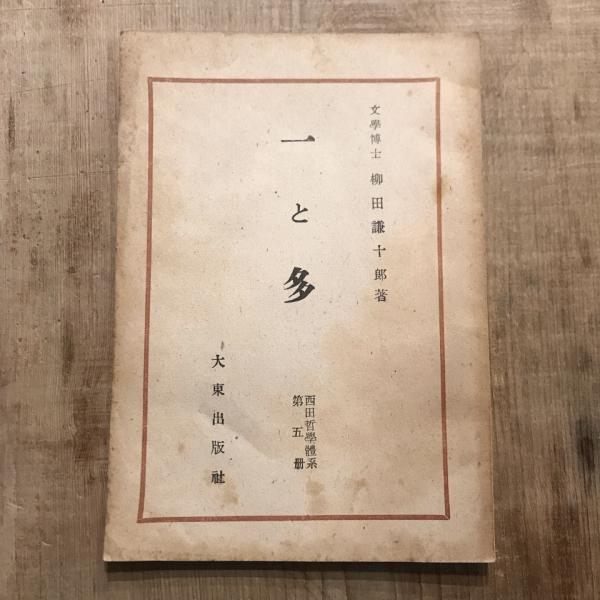 文學博士 柳田謙十郎著
一と多
西田哲學體系
第五册
大東出版社